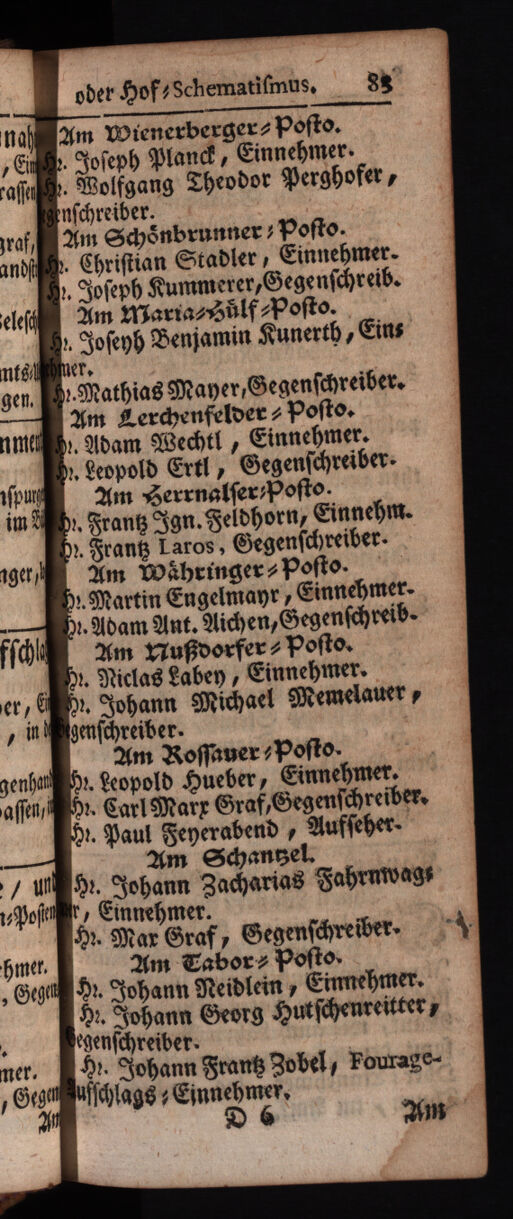 oder Hof-Schematiſmus. 83
Am Wienerberger-Poſto.
Hr. Joſeph Planck, Einnehmer.
Hr. Wolfgang Theodor Perghofer,
genſchreiber.
Am Schönbrunner-Poſto.
Hr. Chriſtian Stadler, Einnehmer.
Hr. Joſeph Kummerer, Gegenſchreib.
Am Maria-Hülf-Poſto.
Hr. Joſeyh Benjamin Kunerth, Ein-
hmer.
Hr. Mathias Mayer, Gegenſchreiber.
Am Lerchenfelder-Poſto.
Hr. Adam Wechtl, Einnehmer.
Hr. Leopold Ertl, Gegenſchreiber.
Am Herrnalſer-Poſto.
Hr. Frantz Ign. Feldhorn, Einnehm.
Hr. Frantz Laros, Gegenſchreiber.
Am Währinger-Poſto.
Hr. Martin Engelmayr, Einnehmer.
Hr. Adam Ant. Aichen, Gegenſchreib.
Am Nußdorfer-Poſto.
Hr. Niclas Labey, Einnehmer.
Hr. Johann Michael Memelauer,
Gegenſchreiber.
Am Roſſauer-Poſto.
Hr. Leopold Hueber, Einnehmer.
Hr. Carl Marx Graf, Gegenſchreiber.
Hr. Paul Feyerabend, Aufſeher.
Am Schantzel.
Hr. Johann Zacharias Fahrnwag-
er, Einnehmer.
Hr. Max Graf, Gegenſchreiber.
Am Tabor-Poſto.
Hr. Johann Neidlein, Einnehmer.
Hr. Johann Georg Hutſchenreitter,
Gegenſchreiber.
Hr. Johann Frantz Zobel, Fourage-
Aufſchlags-Einnehmer.
D 6 Am